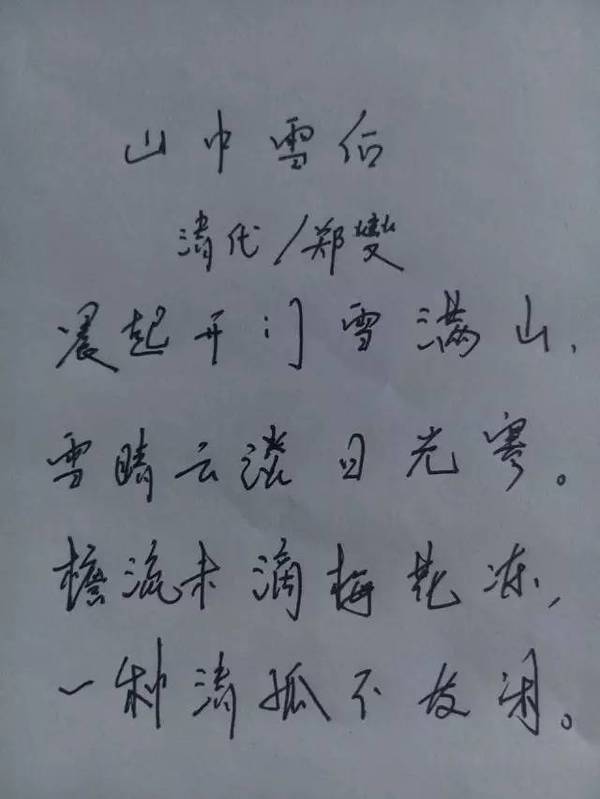 山中雪后
清代/郑燮
晨起开门雪满山,
雪晴云淡日光寒。
檐流未滴梅花冻,
一种清孤不等闲。